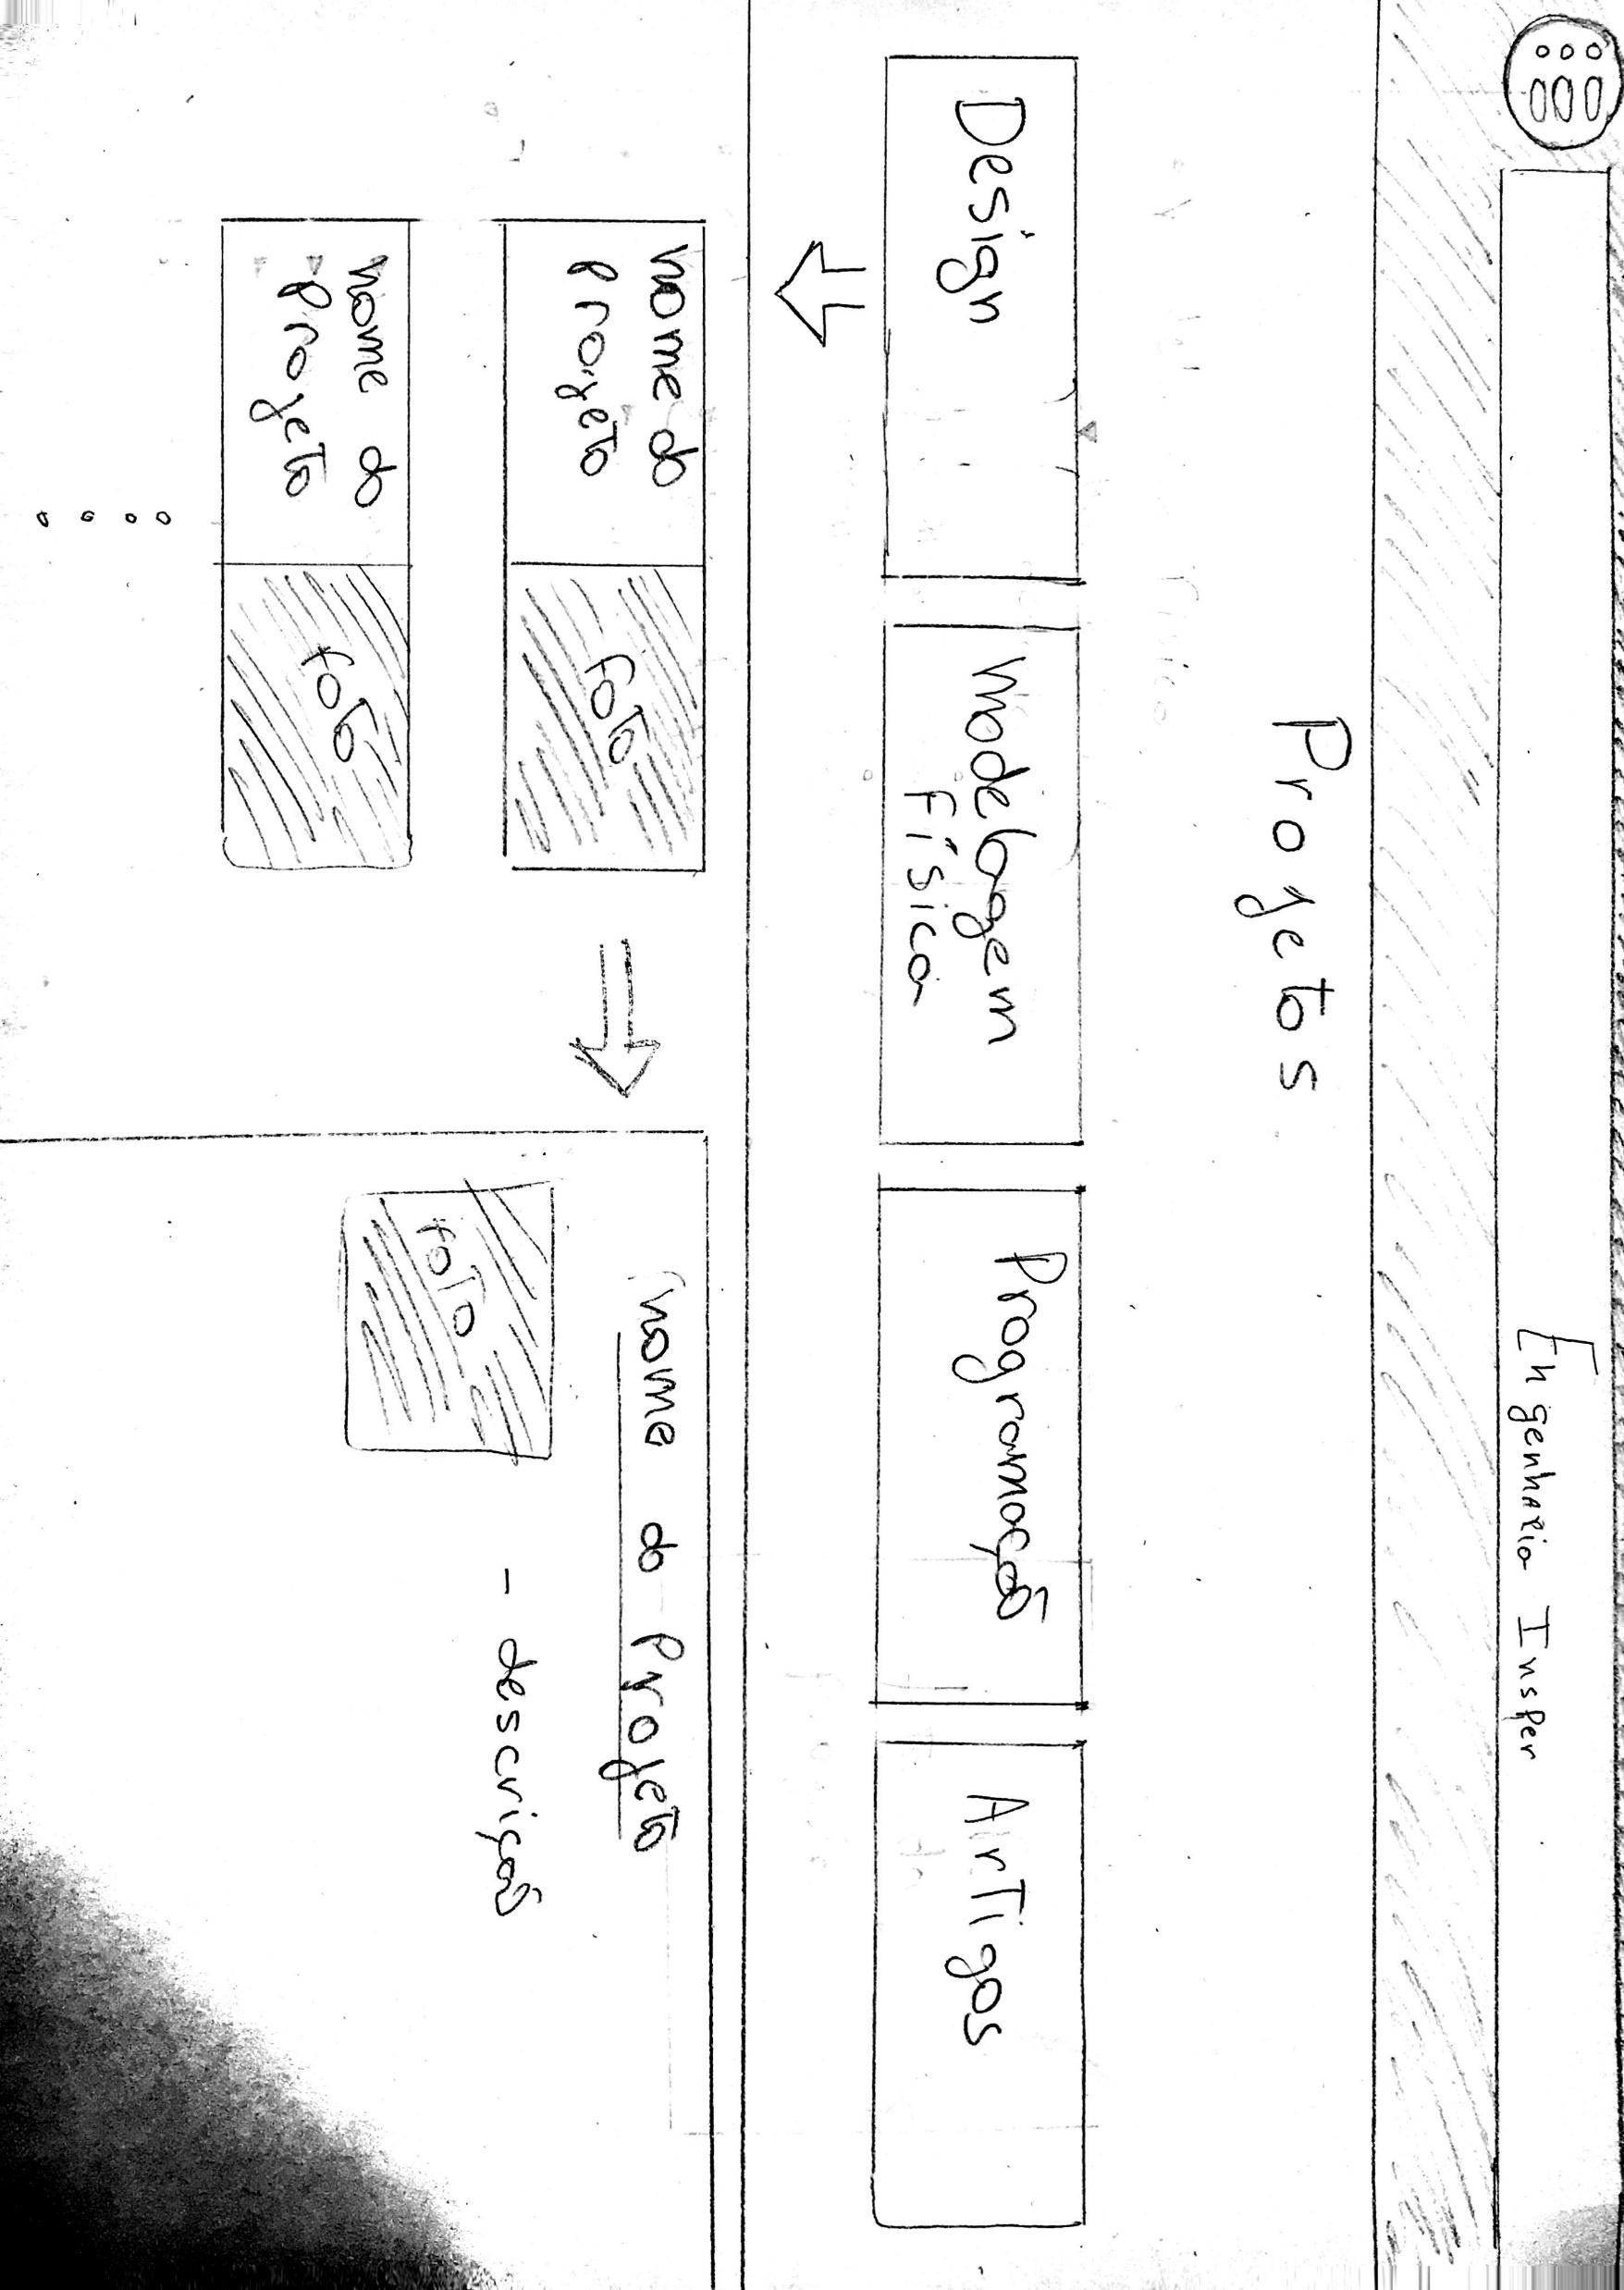 Engenharia Insper
Projetos
Design
Modelagem
Física
Programação
Artigos
nome do
projeto
foto
nome do
projeto
foto
nome do Projeto
foto
- descrição